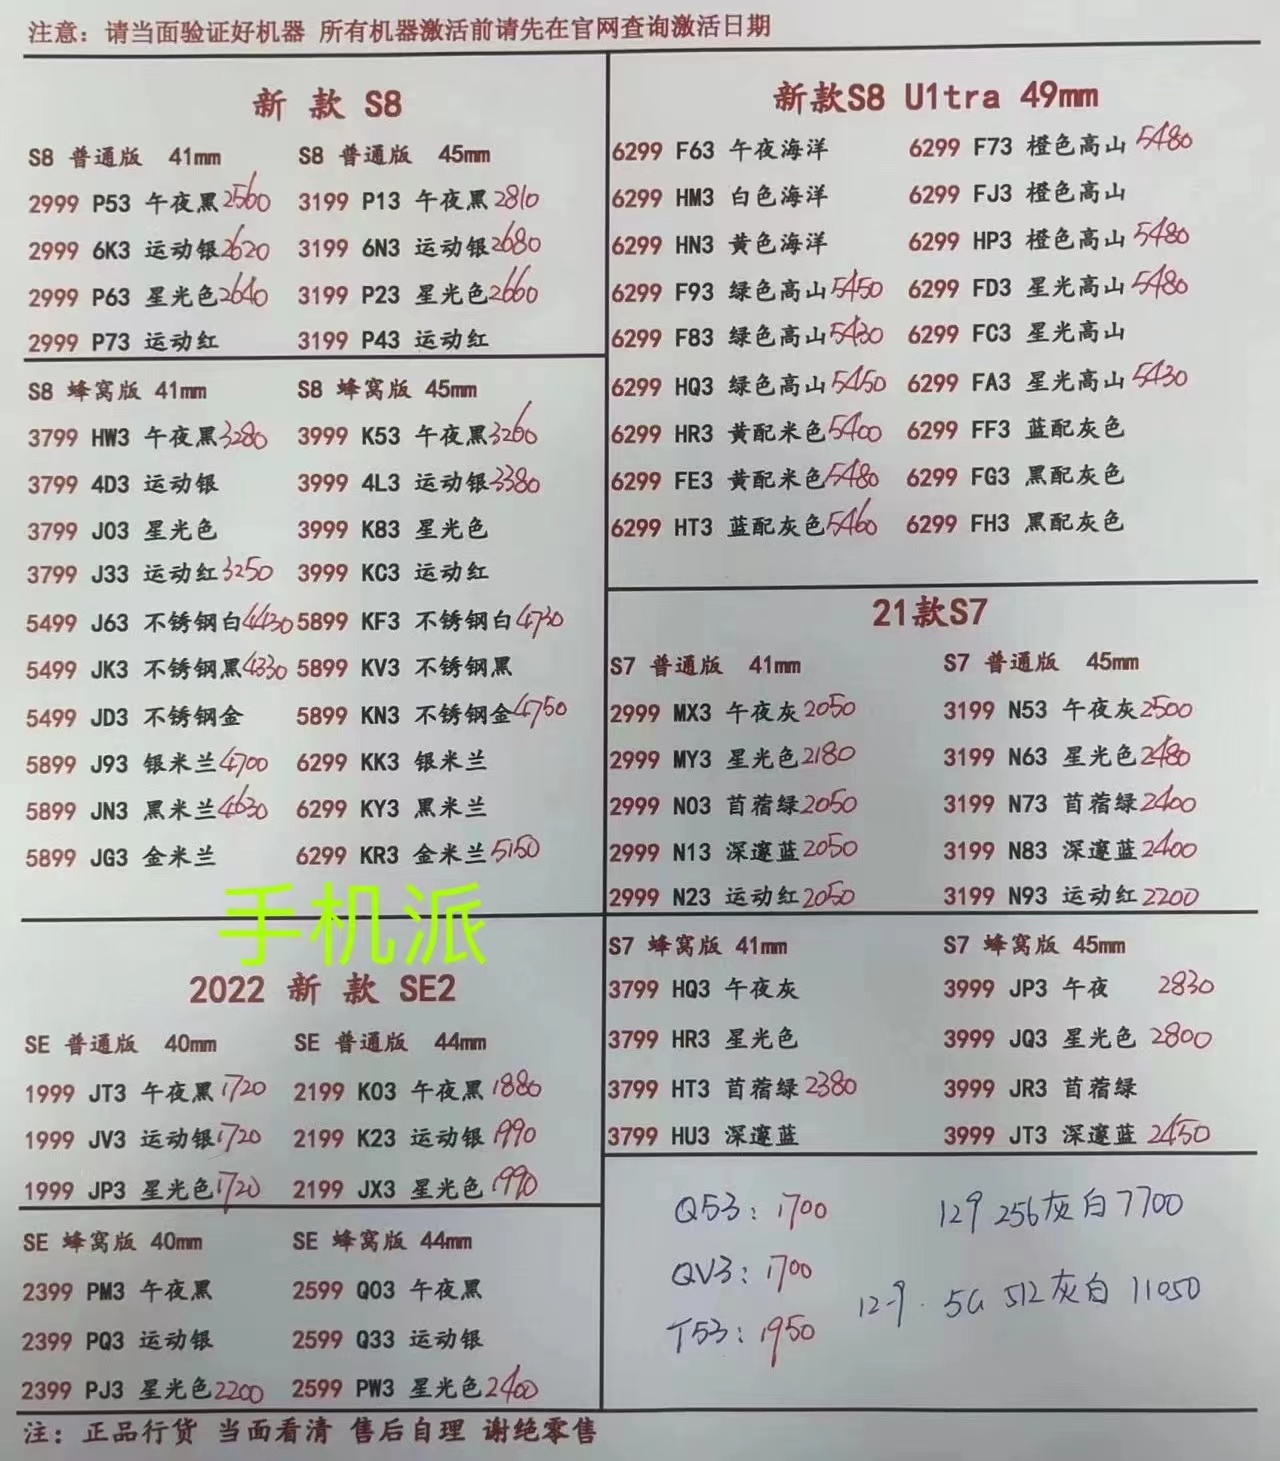 注意：请当面验证好机器 所有机器激活前请先在官网查询激活日期
新 款 S8
S8 普通版 41mm S8 普通版 45mm
2999 P53 午夜黑 2560 3199 P13 午夜黑 2810
2999 6K3 运动银 2620 3199 6N3 运动银 2680
2999 P63 星光色 2640 3199 P23 星光色 2660
2999 P73 运动红 3199 P43 运动红
S8 蜂窝版 41mm S8 蜂窝版 45mm
3799 HW3 午夜黑 3280 3999 K53 午夜黑 3260
3799 4D3 运动银 3999 4L3 运动银 3380
3799 J03 星光色 3999 K83 星光色
3799 J33 运动红 3250 3999 KC3 运动红
5499 J63 不锈钢白 4430 5899 KF3 不锈钢白 4730
5499 JK3 不锈钢黑 4330 5899 KV3 不锈钢黑
5499 JD3 不锈钢金 5899 KN3 不锈钢金 4750
5899 J93 银米兰 4700 6299 KK3 银米兰
5899 JN3 黑米兰 4630 6299 KY3 黑米兰
5899 JG3 金米兰 6299 KR3 金米兰 5150
手机派
2022 新 款 SE2
SE 普通版 40mm SE 普通版 44mm
1999 JT3 午夜黑 1720 2199 K03 午夜黑 1880
1999 JV3 运动银 1720 2199 K23 运动银 1990
1999 JP3 星光色 1720 2199 JX3 星光色 1990
SE 蜂窝版 40mm SE 蜂窝版 44mm
2399 PM3 午夜黑 2599 Q03 午夜黑
2399 PQ3 运动银 2599 Q33 运动银
2399 PJ3 星光色 2200 2599 PW3 星光色 2400
新款S8 U1tra 49mm
6299 F63 午夜海洋 6299 F73 橙色高山 5480
6299 HM3 白色海洋 6299 FJ3 橙色高山
6299 HN3 黄色海洋 6299 HP3 橙色高山 5480
6299 F93 绿色高山 5450 6299 FD3 星光高山 5480
6299 F83 绿色高山 5430 6299 FC3 星光高山
6299 HQ3 绿色高山 5450 6299 FA3 星光高山 5430
6299 HR3 黄配米色 5400 6299 FF3 蓝配灰色
6299 FE3 黄配米色 5480 6299 FG3 黑配灰色
6299 HT3 蓝配灰色 5460 6299 FH3 黑配灰色
21款S7
S7 普通版 41mm S7 普通版 45mm
2999 MX3 午夜灰 2050 3199 N53 午夜灰 2500
2999 MY3 星光色 2180 3199 N63 星光色 2480
2999 N03 首蓿绿 2050 3199 N73 首蓿绿 2400
2999 N13 深邃蓝 2050 3199 N83 深邃蓝 2400
2999 N23 运动红 2050 3199 N93 运动红 2200
S7 蜂窝版 41mm S7 蜂窝版 45mm
3799 HQ3 午夜灰 3999 JP3 午夜 2830
3799 HR3 星光色 3999 JQ3 星光色 2800
3799 HT3 首蓿绿 2380 3999 JR3 首蓿绿
3799 HU3 深邃蓝 3999 JT3 深邃蓝 2450
Q53：1700 12.9 256灰白7700
QV3：1700
12.9. 5G 512灰白 11050
T53：1950
注：正品行货 当面看清 售后自理 谢绝零售